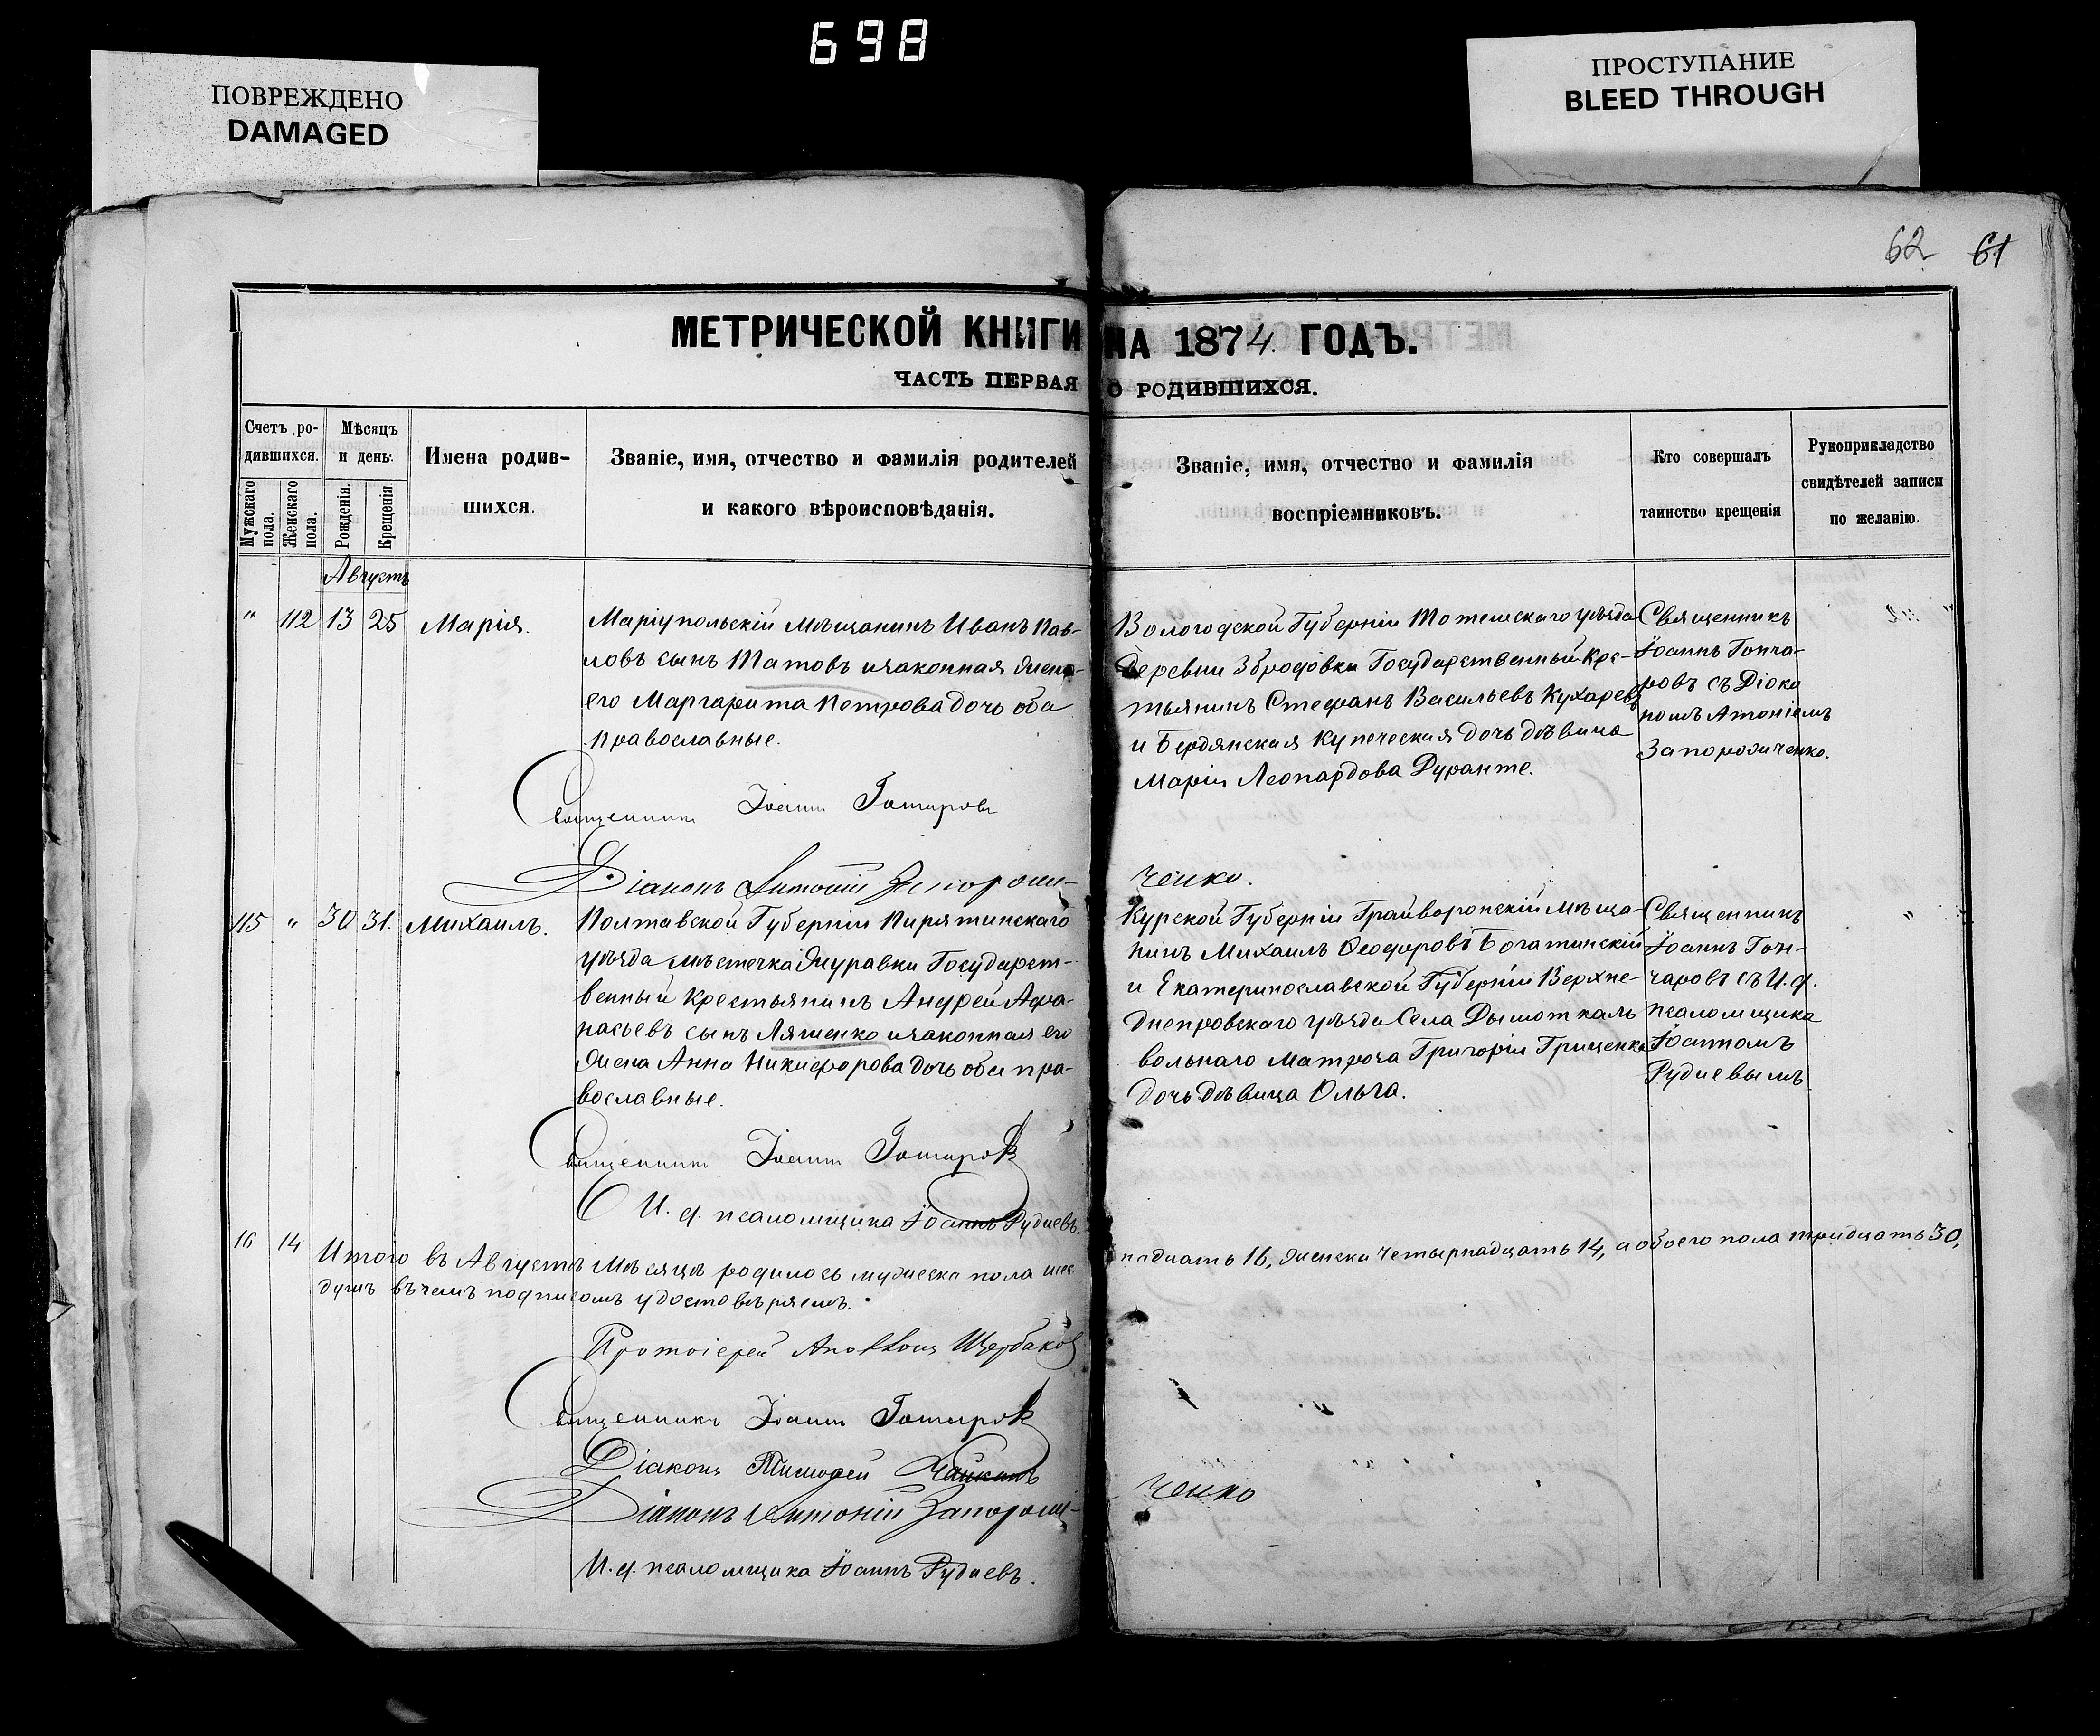 698
ПОВРЕЖДЕНО
DAMAGED
ПРОСТУПАНИЕ
BLEED THROUGH
62 61
МЕТРИЧЕСКОЙ КНИГИ НА 1874 ГОДЪ.
ЧАСТЬ ПЕРВАЯ О РОДИВШИХСЯ.
Счетъ ро-
дившихся.
Мужскаго пола.
Женскаго пола.
Мѣсяцъ
и день.
Рожденія.
Крещенія.
Имена родив-
шихся.
Званіе, имя, отчество и фамилія родителей
и какого вѣроисповѣданія.
Званіе, имя, отчество и фамилія
воспріемниковъ.
Кто совершалъ
таинство крещенія
Рукоприкладство
свидѣтелей записи
по желанію.
Августъ
" 112 13 25 Марія.
Маріупольскій Мѣщанинъ Иванъ Пав-
ловъ сынъ Татовъ и законная жена
его Маргарита Петрова дочь оба
православные.
Вологодской Губерніи Тотемскаго уѣзда
Деревни Збродовки Государственный Кре-
стьянинъ Стефанъ Васильевъ Кухаревъ
и Бердянская Купеческая дочь дѣвица
Марія Леопардова Дуранте.
Священникъ
Іоаннъ Гонча-
ровъ съ Діако
номъ Атоніемъ
Запорожченко.
Священникъ Іоаннъ Гончаровъ
Діаконъ Антоній Запорож-
ченко.
115 " 30 31. Михаилъ.
Полтавской Губерніи Пирятинскаго
уѣзда мѣстечка Журавки Государст-
венный Крестьянинъ Андрей Афа-
насьевъ сынъ Ляшенко и законная его
жена Анна Никифорова дочь оба пра-
вославные.
Курской Губерніи Грайворонскій мѣща-
нинъ Михаилъ Феодоровъ Богатинскій
и Екатеринославской Губерніи Верхне-
днепровскаго уѣзда Села
вольнаго Матроса Григорія Гриценка
дочь дѣвица Ольга.
Священникъ
Іоаннъ Гон-
чаровъ съ И.д.
псаломщика
Іоанномъ
Рудневымъ
"
Священникъ Іоаннъ Гончаровъ
И. д. псаломщика Іоаннъ Рудневъ.
16 14
Итого въ Августѣ Мѣсяцѣ родилось мужеска пола шест
надцать 16, женска четырнадцать 14, а обоего пола тридцать 30,
душъ въ чемъ подписомъ удостовѣряемъ.
Протоіерей Аполлонъ Щербаковъ
Священникъ Іоаннъ Гончаровъ
Діаконъ Тимофей Чайкинъ
Діаконъ Антоній Запорож-
ченко
И. д. псаломщика Іоаннъ Рудневъ.